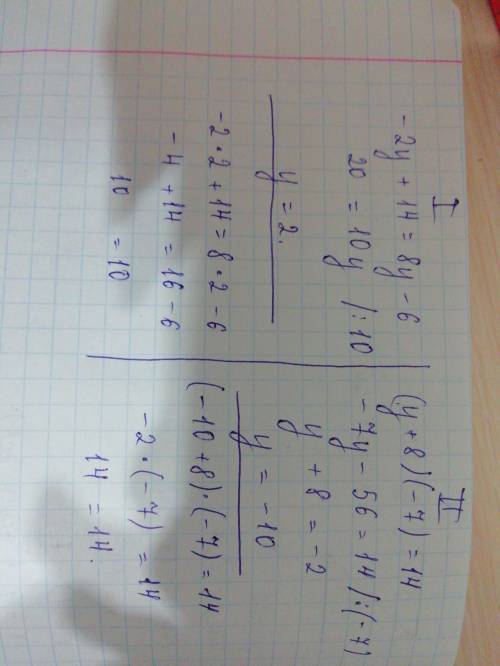 I
-2y + 14 = 8y - 6
20 = 10y /:10
y = 2.
-2·2 + 14 = 8·2 - 6
-4 + 14 = 16 - 6
10 = 10
II
(y + 8)(-7) = 14
-7y - 56 = 14 /:(-7)
y + 8 = -2
y = -10
(-10 + 8)·(-7) = 14
-2·(-7) = 14
14 = 14.